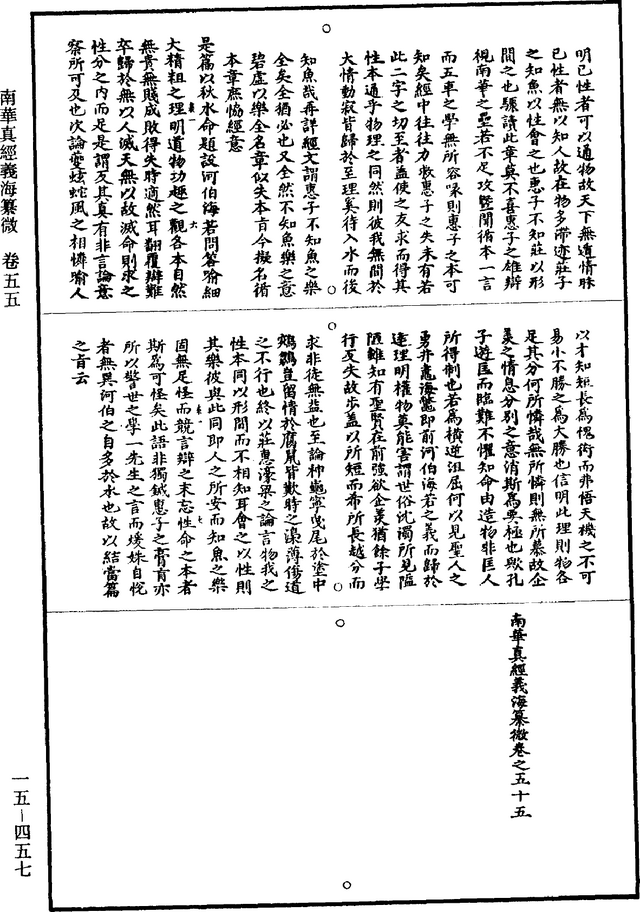 明已性者可以通物故天下無遁情昧
已性者無以知人故在物多滯迹莊子
之知魚以性會之也惠子不知莊以形
間之也驟讀此章莫不喜惠子之雄辯
視南華之壘若不足攻暨聞循本一言
而五車之學無所容喙則惠子之本可
知矣經中往往力救惠子之失未有若
此二字之切至者蓋使之反求而得其
性本通乎物理之同然則彼我無間於
大情動寂皆歸於至理奚待入水而後
知魚哉再詳經文謂惠子不知魚之樂
全矣全猶必也又全然不知魚樂之意
碧虛以樂全名章似失本旨今擬名循
本章庶協經意
是篇以秋水命題設河伯海若問答喻細
大精粗之理明道物功趣之觀各本自然
無貴無賤成敗得失時適然耳翻覆辯難
卒歸於無以人滅天無以故滅命則求之
性分之內而足是謂反其真有非言論意
察所可及也次論夔蚿蛇風之相憐喻人
以才知短長為愧衒而弗悟天機之不可
易小不勝之為大勝也信明此理則物各
足其分何所憐哉無所憐則無所慕故企
羡之情息分別之意消斯為要極也歟孔
子遊匡而臨難不懼知命由造物非匡人
所得制也若為橫逆沮屈何以見聖人之
勇井鼃海鱉即前河伯海若之義而歸於
達理明權物莫能害謂世俗沈濁所見隘
陋雖知有聖賢在前強欲企羡猶餘子學
行反失故步蓋以所短而希所長越分而
求非徒無益也至論神龜寧曳尾於塗中
鵷鶵豈留情於腐鼠皆歎時之澆薄傷道
之不行也終以莊惠濠梁之論言物我之
性本同以形間而不相知耳會之以性則
其樂彼與此同即人之所安而知魚之樂
固無足怪而競言辯之末忘性命之本者
斯為可怪矣此語非獨鍼惠子之膏肓亦
所以警世之學一先生之言而煖姝自悅
者無異河伯之自多於水也故以結當篇
之旨云
南華真經義海纂微卷之五十五
南華真經義海纂微 卷五五
一五－四五七